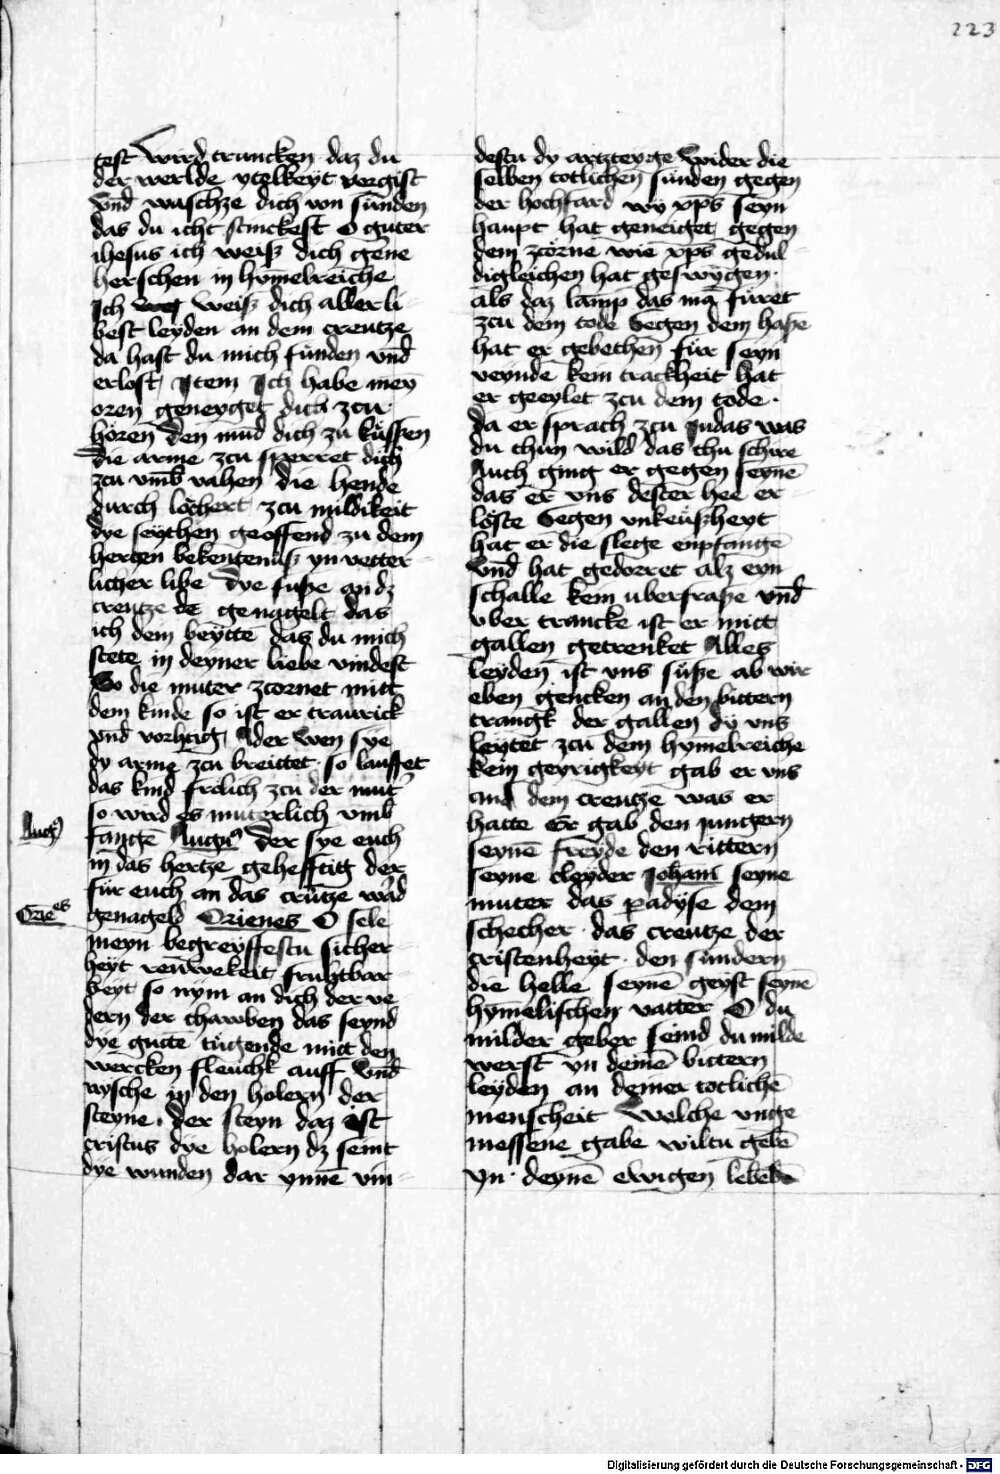 223
test wird truncken daz du
der werlde ytelkeyt vorgist
Vnd waschze dich von sunden
das du icht stinckest O guter
ihesus ich weiß dich gene
herschen in hymelreiche
Ich weiß dich aller li-
best leyden an dem creutze
da hast du mich funden vnd
erlost Item Ich habe meȳ
oren geneyget dich zcu
hören den mūd dich zu küssen
die arme zcu sperret dich
zcu vmb vahen die hende
durch löchert zcu mildikeit
dye seythen geoffend zu dem
herczen bekentenuß yn vetter-
licher libe Dye fuße an dz
creutze de genagelt das
ich dem beytte das du mich
stete in deyner liebe vindest
So die muter zcornet mitt
dem kinde so ist er traurick
vnd vorhtig Ader wen sye
dy arme zcu breittet so lauffet
das kind frölich zcu der mut'
so wird es muterlich vmb
Aug9
fangē Augu9 der sye euch
in das hertze gehefftitg der
für euch an das crutze wäd
Orienes
genageld Orienes O sele
meyn begreyffestu sicher-
heyt fruhtbar-
heyt so nym an dich der ve-
dern der thawben das seynd
dye gutte tugende mitt den
wercken fleuchk auff Vnd
nysche in den holern der
steyne. der steyn daz ist
cristus dye holern dz seint
dye wunden dar ynnē vin-
destu dy artzteyge Wider die
selben totlichen sunden gegen
der hochfard wy xps seyn
haupt hat geneiget gegen
dem zcorne wie xps gedul-
digleichen hat geswygen.
als daz lamp das mā füret
zcu dem tode Gegen dem haße
hat er gebethen für seyn
veynde kein trackheit hat
er geeylet zcu dem tode.
da er sprach zcu Judas was
du thun wild das thu schire
Auch ging er gegen seynē
das er vns dester hee er-
löste Gegen vnkeüßheyt
hat er die slege enpfangē
Vnd hat gedorret alz eyn
schalle kein uberfraße vnd
vber trancke ist er mitt
gallen getrenket Alles
leyden ist vns süße ab wir
eben gencken an den bittern
trangk der gallen dy vns
leytet zcu dem hymelreiche
kein geyrigkeyt gab er vns
and dem creutze was er
hatte Er gab den jungern
seynē freyde den rittern
seyne cleyder Johāni seyne
muter das padyse dem
schecher. das creutze der
cristenheyt. den sundern
die helle seynē geyst seynē
hymelischen vatter O du
milder geber seind du milde
werst yn deinē bittern
leyden an deiner totlichē
menscheit Welche vnge
messene gabe wiltu gebē
yn. deynē ewigen lebēn
Digitalisierung gefördert durch die Deutsche Forschungsgemeinschaft - DFG